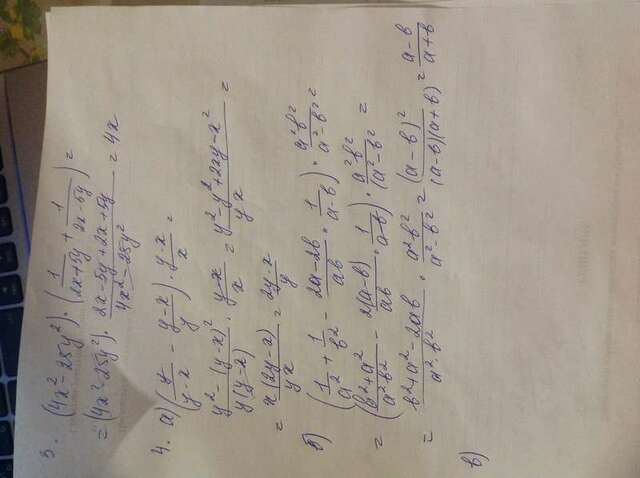 3. (4x² - 25y²) · (1/(2x+5y) + 1/(2x-5y)) =
= (4x² - 25y²) · (2x-5y+2x+5y)/(4x²-25y²) = 4x
4. а) (y/(y-x) - (y-x)/y) · (y-x)/x =
(y²-(y-x)²)/(y(y-x)) · (y-x)/x = (y²-y²+2xy-x²)/(yx) =
= x(2y-x)/(yx) = (2y-x)/y
б) (1/a² + 1/b² - (2a-2b)/(ab) · 1/(a-b)) · a²b²/(a²-b²) =
= ((b²+a²)/(a²b²) - 2(a-b)/(ab) · 1/(a-b)) · a²b²/(a²-b² =
= (b²+a²-2ab)/(a²·b²) · a²b²/(a²-b²) = (a-b)²/((a-b)(a+b)) = (a-b)/(a+b)
в)